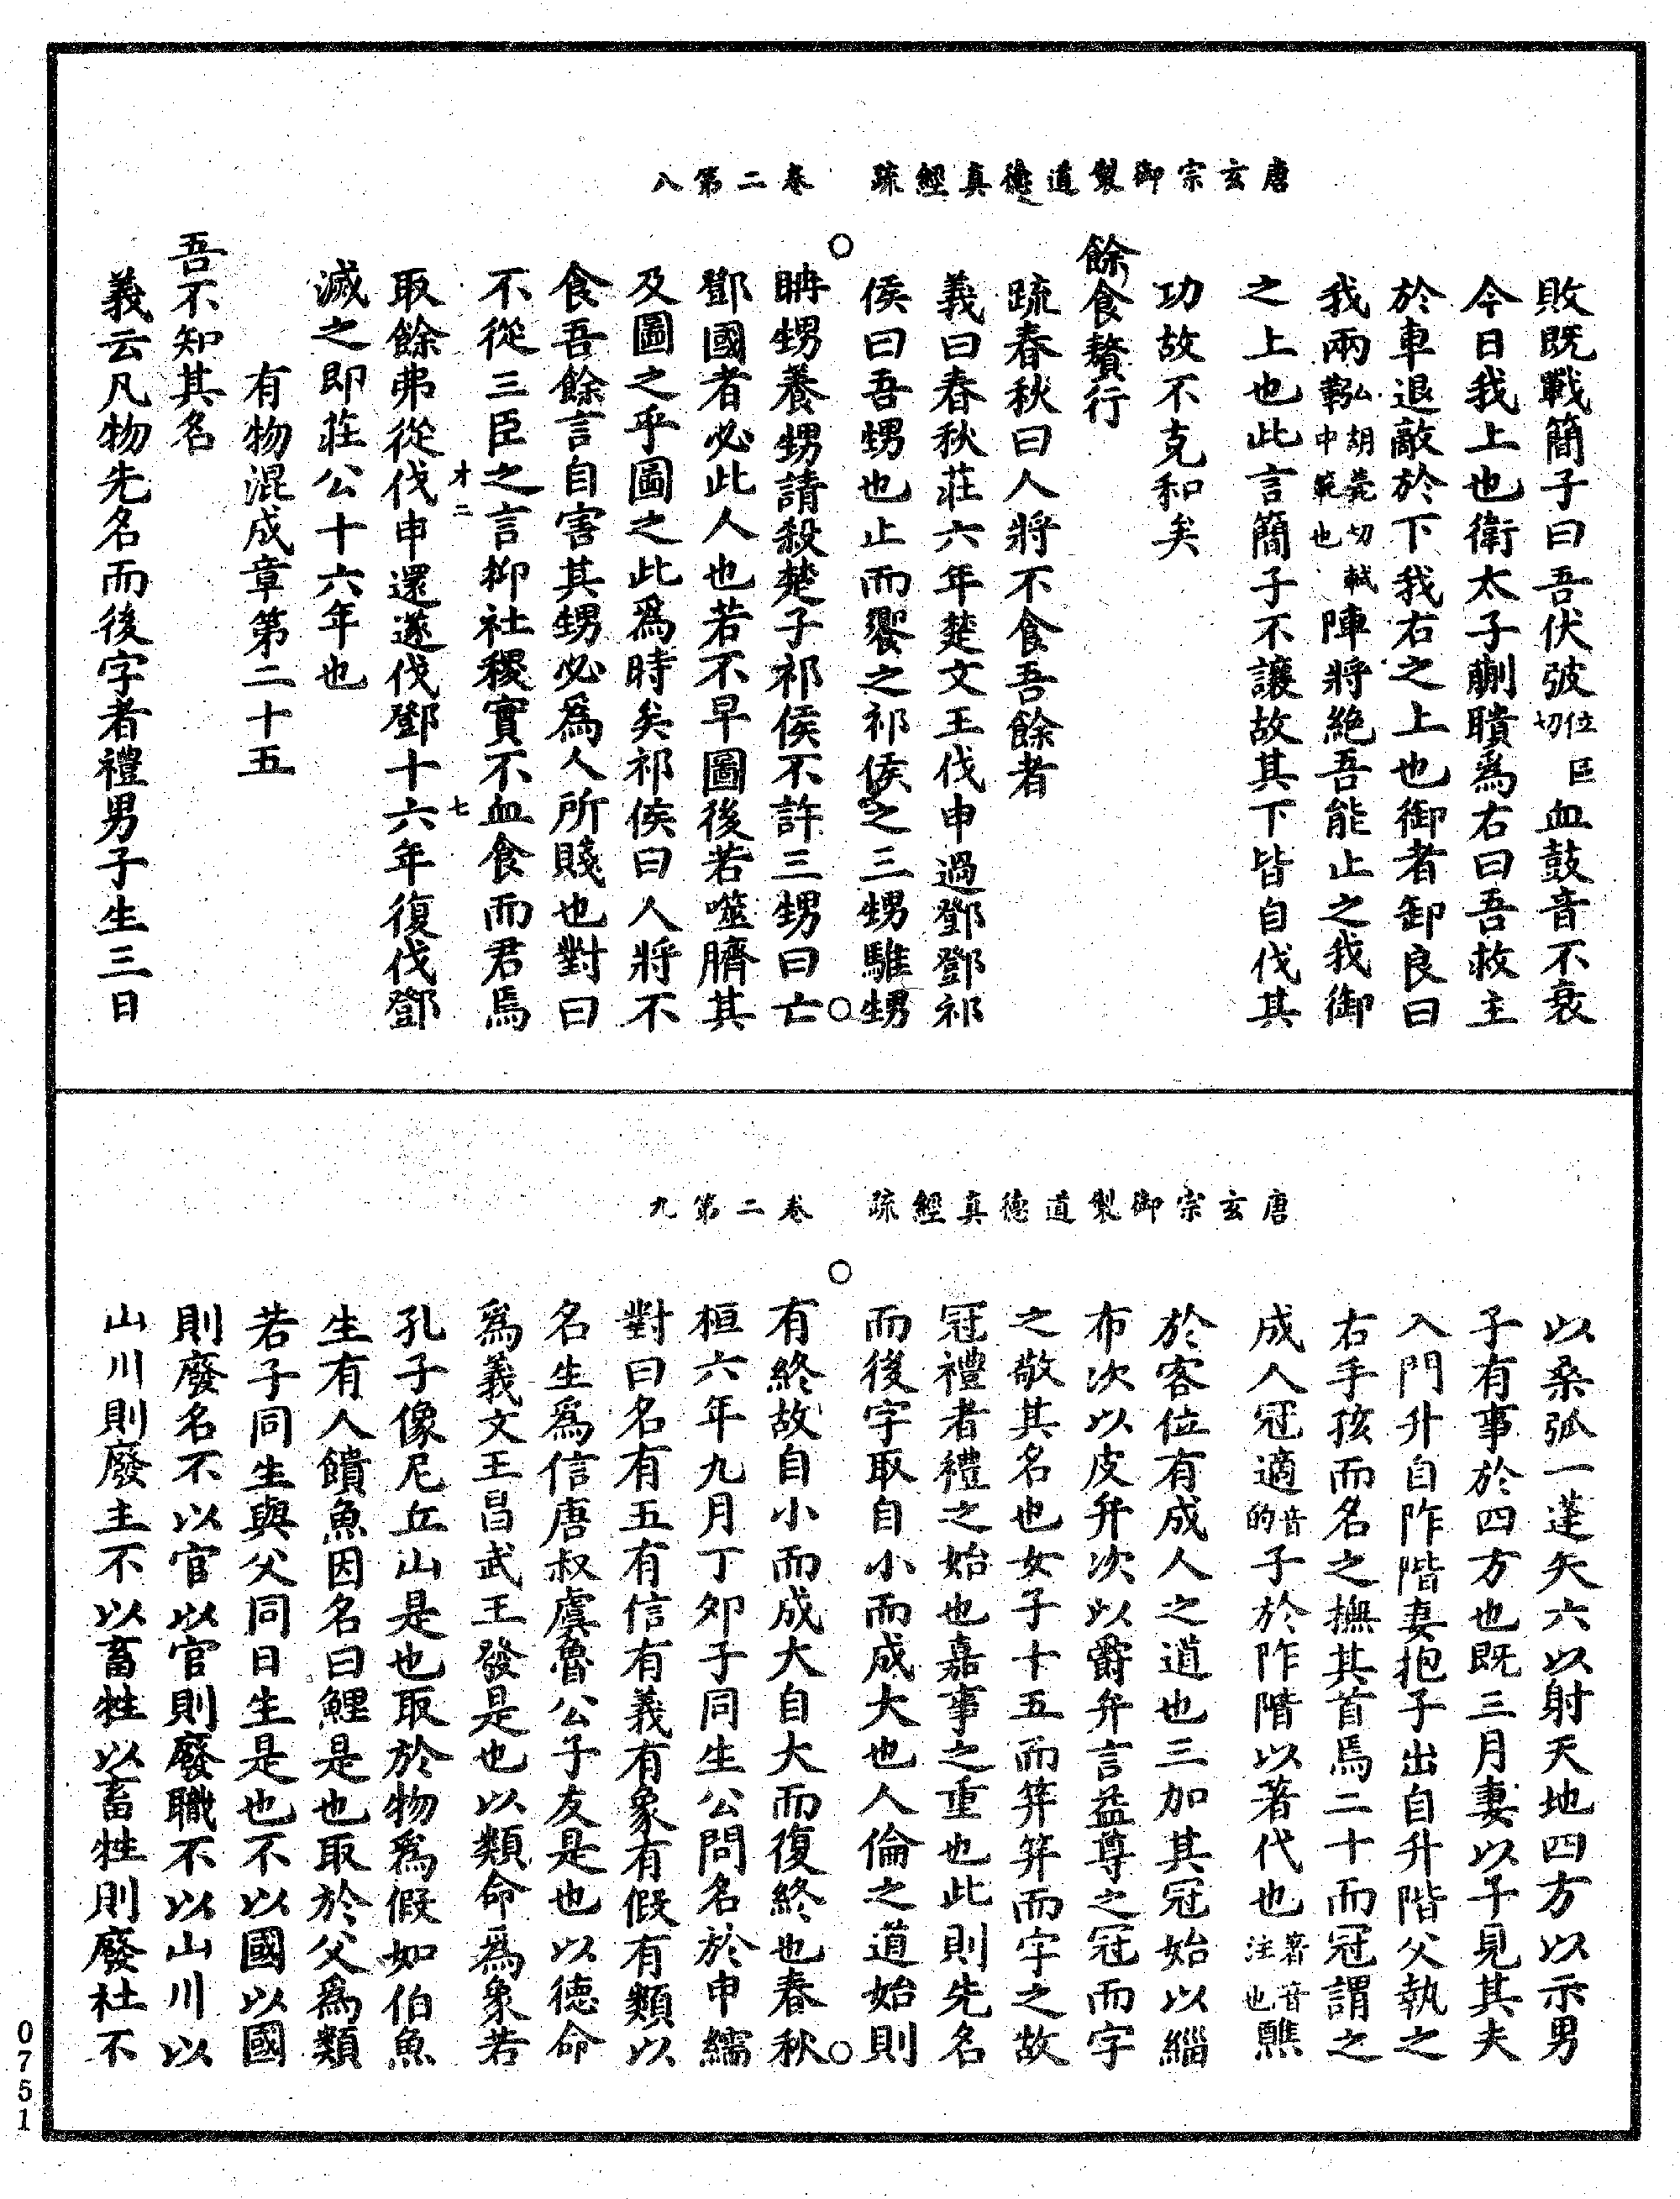 唐玄宗御製道德真經疏　卷二第八
敗既戰簡子曰吾伏弢位臣切血鼓音不衰
今日我上也衛太子蒯聵為右曰吾救主
於車退敵於下我右之上也御者卸良曰
我兩鞃胡薨切軾中範也陣將絕吾能止之我御
之上也此言簡子不讓故其下皆自伐其
功故不克和矣
餘食贅行
疏春秋曰人將不食吾餘者
義曰春秋莊六年楚文王伐申過鄧鄧祁
侯曰吾甥也止而饗之祁侯之三甥騅甥
聃甥養甥請殺楚子祁侯不許三甥曰亡
鄧國者必此人也若不早圖後若噬臍其
及圖之乎圖之此為時矣祁侯曰人將不
食吾餘言自害其甥必為人所賤也對曰
不從三臣之言抑社稷實不血食而君焉
才二　七
取餘弗從伐申還遂伐鄧十六年復伐鄧
滅之即莊公十六年也
有物混成章第二十五
吾不知其名
義云凡物先名而後字者禮男子生三日
唐玄宗御製道德真經疏　卷二第九
以桑弧一蓬矢六以射天地四方以示男
子有事於四方也既三月妻以子見其夫
入門升自阼階妻抱子出自升階父執之
右手孩而名之撫其首焉二十而冠謂之
成人冠適音的子於阼階以著代也著音注也醮
於客位有成人之道也三加其冠始以緇
布次以皮弁次以爵弁言益尊之冠而字
之敬其名也女子十五而笄笄而字之故
冠禮者禮之始也嘉事之重也此則先名
而後字取自小而成大也人倫之道始則
有終故自小而成大自大而復終也春秋
桓六年九月丁卯子同生公問名於申繻
對曰名有五有信有義有象有假有類以
名生為信唐叔虞魯公子友是也以德命
為義文王昌武王發是也以類命為象若
孔子像尼丘山是也取於物為假如伯魚
生有人饋魚因名曰鯉是也取於父為類
若子同生與父同日生是也不以國以國
則廢名不以官以官則廢職不以山川以
山川則廢主不以畜牲以畜牲則廢社不
0751